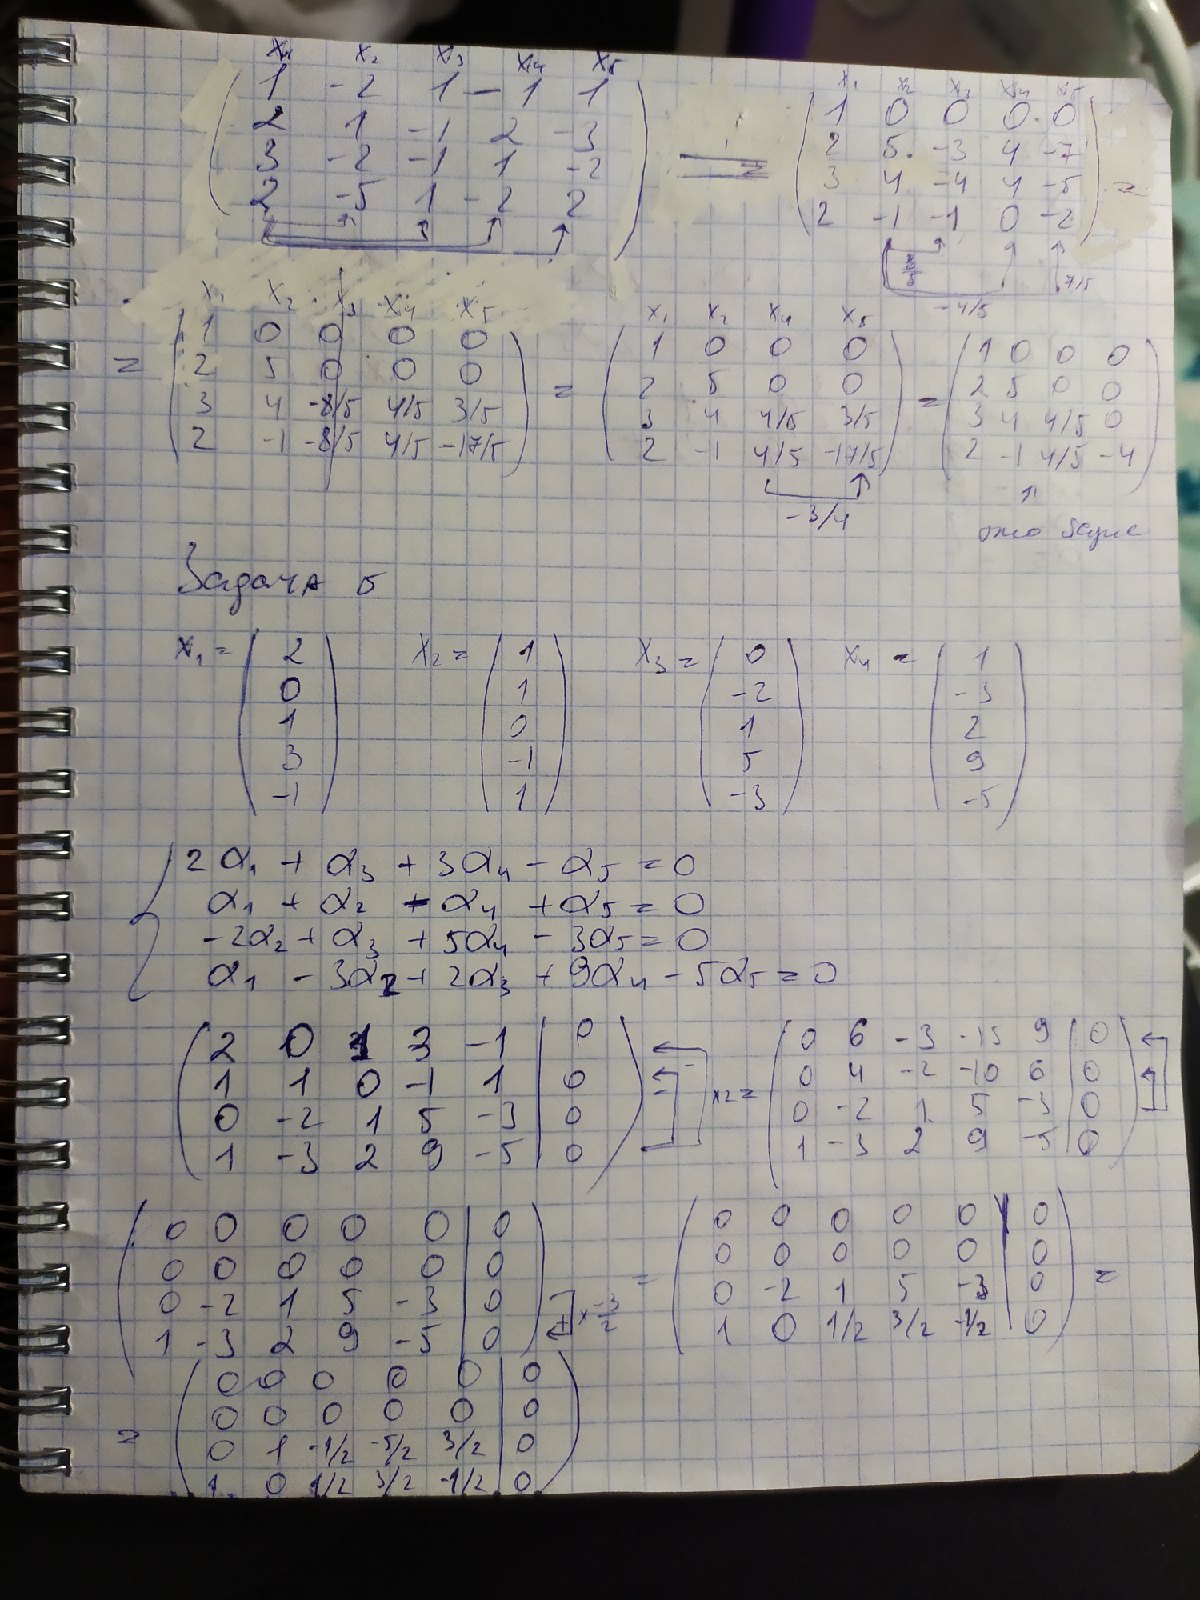 x₁ x₂ x₃ x₄ x₅
1 -2 1 -1 1
2 1 -1 2 -3
3 -2 -1 1 -2
2 -5 1 -2 2
=
x₁ x₂ x₃ x₄ x₅
1 0 0 0 0
2 5 -3 4 -7
3 4 -4 4 -5
2 -1 -1 0 -2
=
7/5
-4/5
=
x₁ x₂ x₃ x₄ x₅
1 0 0 0 0
2 5 0 0 0
3 4 -8/5 4/5 3/5
2 -1 -8/5 4/5 -17/5
=
x₁ x₂ x₄ x₅
1 0 0 0
2 5 0 0
3 4 4/5 3/5
2 -1 4/5 -17/5
-3/4
=
1 0 0 0
2 5 0 0
3 4 4/5 0
2 -1 4/5 -4
это базис
Задача 5
x₁ = (2 0 1 3 -1) x₂ = (1 1 0 -1 1) x₃ = (0 -2 1 5 -3) x₄ = (1 -3 2 9 -5)
2α₁ + α₃ + 3α₄ - α₅ = 0
α₁ + α₂ - α₄ + α₅ = 0
-2α₂ + α₃ + 5α₄ - 3α₅ = 0
α₁ - 3α₂ + 2α₃ + 9α₄ - 5α₅ = 0
2 0 1 3 -1 | 0
1 1 0 -1 1 | 0
0 -2 1 5 -3 | 0
1 -3 2 9 -5 | 0
x2 =
0 6 -3 -15 9 | 0
0 4 -2 -10 6 | 0
0 -2 1 5 -3 | 0
1 -3 2 9 -5 | 0
0 0 0 0 0 | 0
0 0 0 0 0 | 0
0 -2 1 5 -3 | 0
1 -3 2 9 -5 | 0
x -3/2
=
0 0 0 0 0 | 0
0 0 0 0 0 | 0
0 -2 1 5 -3 | 0
1 0 1/2 3/2 -1/2 | 0
=
=
0 0 0 0 0 | 0
0 0 0 0 0 | 0
0 1 -1/2 -5/2 3/2 | 0
1 0 1/2 3/2 -1/2 | 0